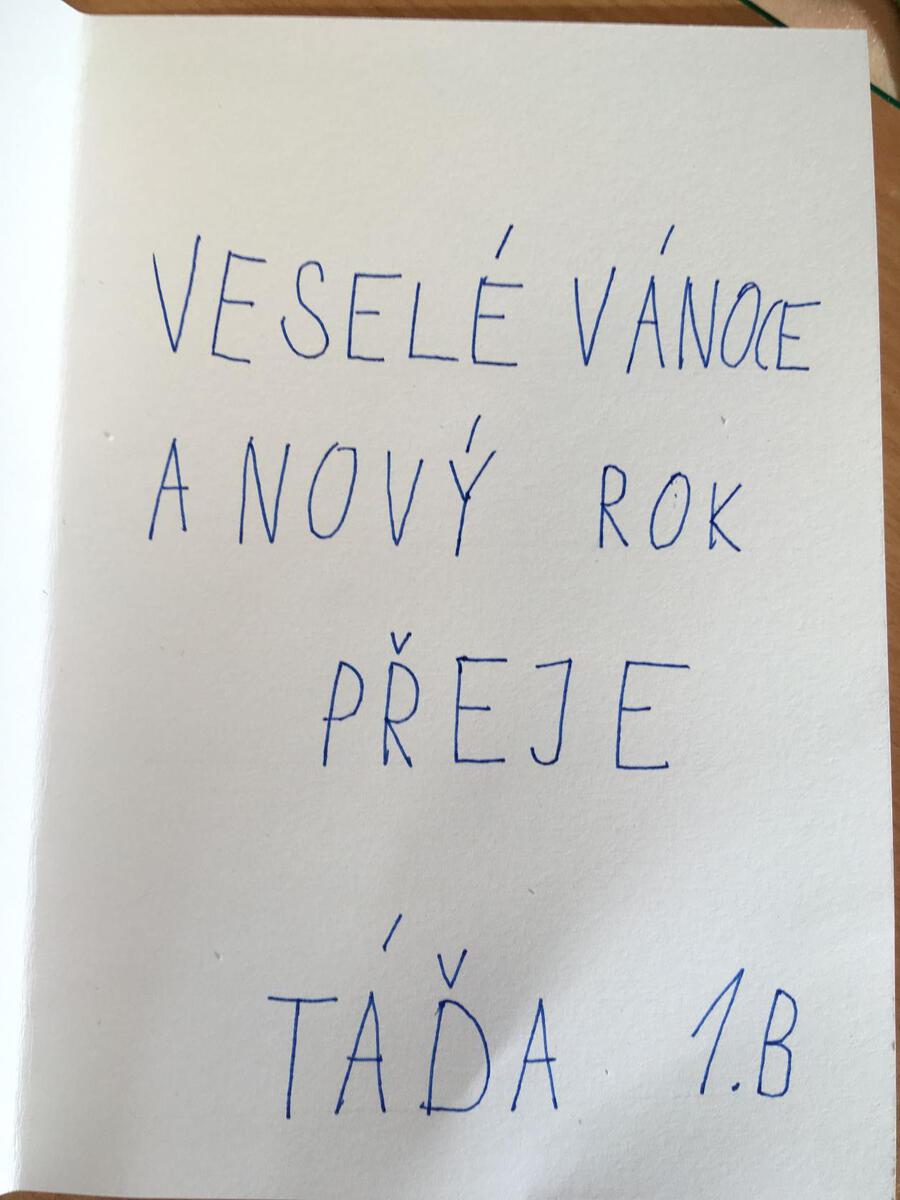 VESELÉ VÁNOCE
A NOVÝ ROK
PŘEJE
TÁĎA 1.B